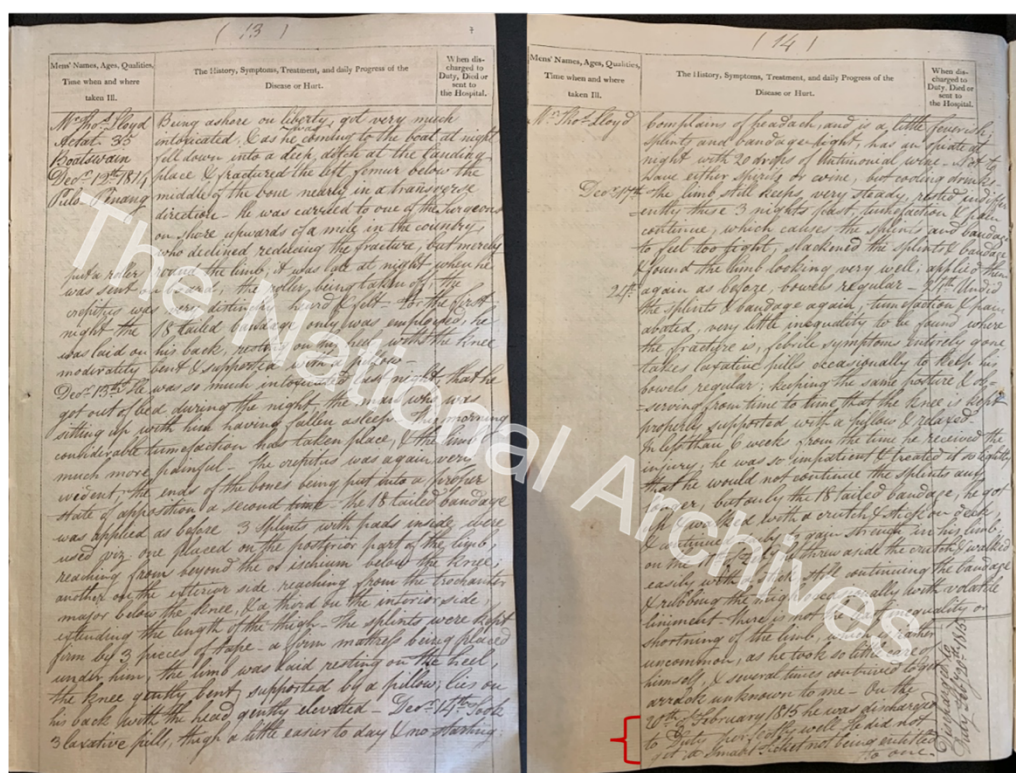 ( 13 )
Mens' Names, Ages, Qualities,
Time when and where
taken Ill.
The History, Symptoms, Treatment, and daily Progress of the
Disease or Hurt.
When dis-
charged to
Duty, Died or
sent to
the Hospital.
Mr. Thos. Lloyd
Aetat 35
Boatswain
Decr. 12th 1814
Pulo Penang
Being ashore on liberty, got very much
intoxicated, & as he was coming to the boat at night
fell down into a deep ditch at the landing
place & fractured the left femur below the
middle of the bone nearly in a transverse
direction - He was carried to one of the Surgeons
on shore upwards of a mile in the country
who declined reducing the fracture, but merely
put a roller round the limb, it was late at night when he
was sent on board, the roller being taken off, the
crepitus was very distinctly heard & felt - for the first
night the 18 tailed bandage only was employed, he
was laid on his back, resting on his heel with the knee
moderately bent & supported with pillow -
Decr. 13th He was so much intoxicated last night, that he
got out of bed during the night, the man who was
sitting up with him having fallen asleep - this morning
considerable tumefaction has taken place, & the limb
much more painful - the crepitus was again very
evident, the ends of the bones being put into a proper
state of apposition a second time - the 18 tailed bandage
was applied as before 3 splints with pads inside, were
used viz: one placed on the posterior part of the limb,
reaching from beyond the os ischium below the knee,
another on the exterior side, reaching from the trochanter
major below the knee, & a third on the interior side,
extending the length of the thigh - the splints were kept
firm by 3 pieces of tape - a firm mattress being placed
under him, the limb was laid resting on the heel,
the knee gently bent, supported by a pillow, lies on
his back with the head gently elevated - Decr. 14th Took
3 laxative pills, thigh a little easier to day & no starting;
( 14 )
Mens' Names, Ages, Qualities,
Time when and where
taken Ill.
The History, Symptoms, Treatment, and daily Progress of the
Disease or Hurt.
When dis-
charged to
Duty, Died or
sent to
the Hospital.
Mr. Thos. Lloyd
complains of headach, and is a little feverish;
splints and bandage tight, has an opiate at
night with 20 drops of Antimonial wine - Not to
have either spirits or wine, but cooling drinks -
Decr. 17th the limb still keeps very steady, rested indiffer
ently these 3 nights past, tumefaction & pain
continue, which cause the splints and bandage
to feel too tight, slackened the splints & bandage
& found the limb looking very well; applied them
24th again as before, bowels regular - 24th Undid
the splints & bandage again, tumefaction & pain
abated, very little inequality to be found where
the fracture is, febrile symptoms entirely gone
takes laxative pills occasionally to keep his
bowels regular; keeping the same posture & ob-
-serving from time to time that the knee is kept
properly supported with a pillow & relaxed.
In less than 6 weeks from the time he received the
injury, he was so impatient & treated it so lightly
that he would not continue the splints any
longer, but only the 18 tailed bandage, he got
up & walked with a crutch & stick on deck
& continued to gain strength in his limb;
on the he threw aside the crutch & walked
easily with a stick still continuing the bandage
& rubbing the thigh occasionally with volatile
liniment - there is not the inequality or
shortning of the limb, which is rather
uncommon, as he took so little care of
himself, & several times contrived to get
arrack unknown to me - On the
20th of February 1815 he was discharged
to Duty perfectly well, he did not
get a Smart Ticket not being entitled
to one.
Discharged to
Duty Feby 20th 1815
The National Archives